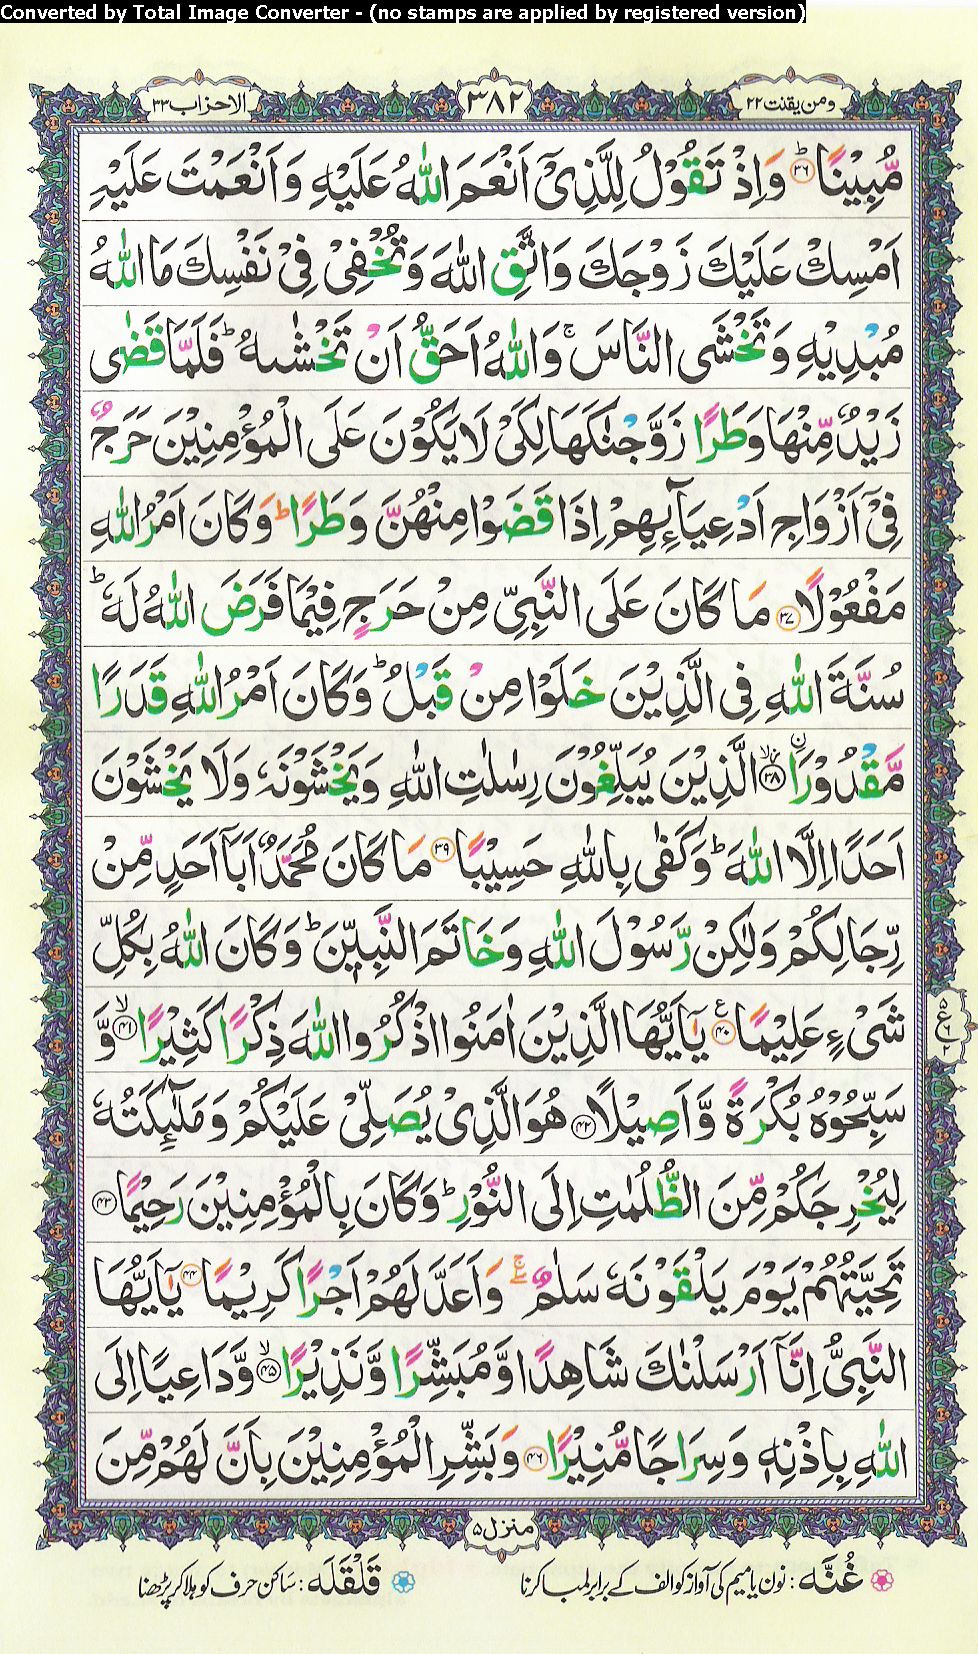 Converted by Total Image Converter - (no stamps are applied by registered version)
ومن یقنت ۲۲
۳۸۲
الاحزاب ۳۳
مُّبِیْنًا ﴿۳۶﴾ؕ وَ اِذْ تَقُوْلُ لِلَّذِیْۤ اَنْعَمَ اللّٰهُ عَلَیْهِ وَ اَنْعَمْتَ عَلَیْهِ
اَمْسِكْ عَلَیْكَ زَوْجَكَ وَ اتَّقِ اللّٰهَ وَ تُخْفِیْ فِیْ نَفْسِكَ مَا اللّٰهُ
مُبْدِیْهِ وَ تَخْشَی النَّاسَ ۚ وَ اللّٰهُ اَحَقُّ اَنْ تَخْشٰىهُ ؕ فَلَمَّا قَضٰی
زَیْدٌ مِّنْهَا وَطَرًا زَوَّجْنٰكَهَا لِكَیْ لَا یَكُوْنَ عَلَی الْمُؤْمِنِیْنَ حَرَجٌ
فِیْۤ اَزْوَاجِ اَدْعِیَآىِٕهِمْ اِذَا قَضَوْا مِنْهُنَّ وَطَرًا ؕ وَ كَانَ اَمْرُ اللّٰهِ
مَفْعُوْلًا ﴿۳۷﴾ مَا كَانَ عَلَی النَّبِیِّ مِنْ حَرَجٍ فِیْمَا فَرَضَ اللّٰهُ لَهٗ ؕ
سُنَّةَ اللّٰهِ فِی الَّذِیْنَ خَلَوْا مِنْ قَبْلُ ؕ وَ كَانَ اَمْرُ اللّٰهِ قَدَرًا
مَّقْدُوْرَا ﴿۳۸﴾ۙ ࣙالَّذِیْنَ یُبَلِّغُوْنَ رِسٰلٰتِ اللّٰهِ وَ یَخْشَوْنَهٗ وَ لَا یَخْشَوْنَ
اَحَدًا اِلَّا اللّٰهَ ؕ وَ كَفٰی بِاللّٰهِ حَسِیْبًا ﴿۳۹﴾ مَا كَانَ مُحَمَّدٌ اَبَاۤ اَحَدٍ مِّنْ
رِّجَالِكُمْ وَ لٰكِنْ رَّسُوْلَ اللّٰهِ وَ خَاتَمَ النَّبِیّٖنَ ؕ وَ كَانَ اللّٰهُ بِكُلِّ
شَیْءٍ عَلِیْمًا ﴿۴۰﴾ یٰۤاَیُّهَا الَّذِیْنَ اٰمَنُوا اذْكُرُوا اللّٰهَ ذِكْرًا كَثِیْرًا ﴿۴۱﴾ۙ وَّ
ع
سَبِّحُوْهُ بُكْرَةً وَّ اَصِیْلًا ﴿۴۲﴾ هُوَ الَّذِیْ یُصَلِّیْ عَلَیْكُمْ وَ مَلٰٓىِٕكَتُهٗ
لِیُخْرِجَكُمْ مِّنَ الظُّلُمٰتِ اِلَی النُّوْرِ ؕ وَ كَانَ بِالْمُؤْمِنِیْنَ رَحِیْمًا ﴿۴۳﴾
تَحِیَّتُهُمْ یَوْمَ یَلْقَوْنَهٗ سَلٰمٌ ۖۚ وَ اَعَدَّ لَهُمْ اَجْرًا كَرِیْمًا ﴿۴۴﴾ یٰۤاَیُّهَا
النَّبِیُّ اِنَّاۤ اَرْسَلْنٰكَ شَاهِدًا وَّ مُبَشِّرًا وَّ نَذِیْرًا ﴿۴۵﴾ۙ وَّ دَاعِیًا اِلَی
اللّٰهِ بِاِذْنِهٖ وَ سِرَاجًا مُّنِیْرًا ﴿۴۶﴾ وَ بَشِّرِ الْمُؤْمِنِیْنَ بِاَنَّ لَهُمْ مِّنَ
منزل ۵
غُنَّه : نون یا میم کی آواز کو الف کے برابر لمبا کرنا قَلْقَلَه : ساکن حرف کو ہلا کر پڑھنا